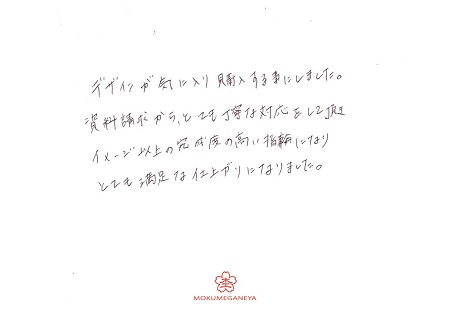 デザインが気に入り購入する事にしました。
資料請求から、とても丁寧な対応をして頂き
イメージ以上の完成度の高い指輪になり
とても満足な仕上がりになりました。
MOKUMEGANEYA